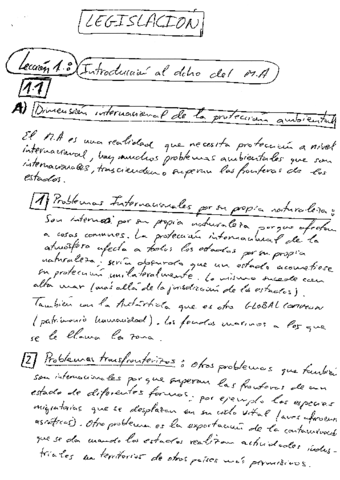 LEGISLACIÓN
Lección 1.: Introducción al dcho del M.A
1.1
A) Dimensión internacional de la protección ambiental
El M.A es una realidad que necesita protección a nivel
internacional, hay muchos problemas ambientales que son
internacionales, trascienden o superan las fronteras de los
estados.
1 Problemas Internacionales por su propia naturaleza:
Son internac por su propia naturaleza porque afectan
a cosas comunes. La protección internacional de la
atmósfera afecta a todos los estados por su propia
naturaleza; sería absurdo que un estado acometiese
su protección unilateralmente. Lo mismo sucede con
alta mar (más allá de la jurisdicción de los estados).
También con la Antártida que es otro GLOBAL common
(patrimonio humanidad). Los fondos marinos a los que
se le llama la zona.
2 Problemas transfronterizos: Otros problemas que también
son internacionales porque superan las fronteras de un
estado de diferentes formas; por ejemplo las especies
migratorias que se desplazan en su ciclo vital (aves
asiáticas). Otro problema es la exportación de la contaminación
que se da cuando los estados realizan actividades indus-
triales en territorios de otros países más permisivos.